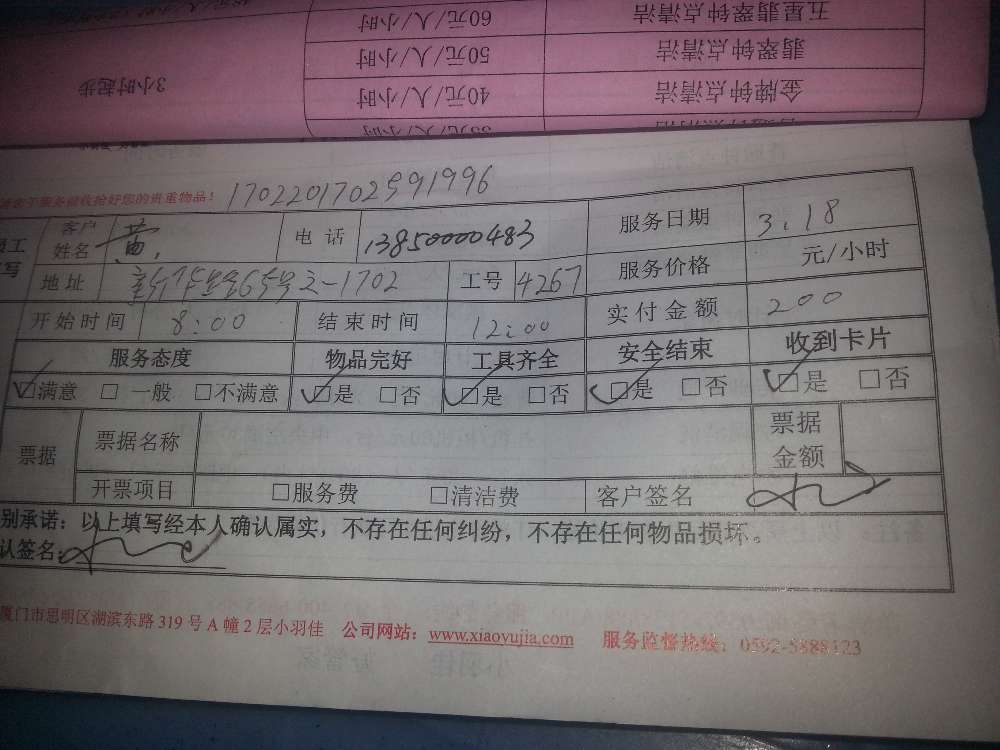 五星翡翠钟点清洁 60元/人/小时
翡翠钟点清洁 50元/人/小时
金牌钟点清洁 40元/人/小时
3小时起步
务前收拾好您的贵重物品! 1702201702591996
客户姓名 黄 电话 13850000483 服务日期 3.18
地址 65号之-1702 工号 4267 服务价格 元/小时
开始时间 8:00 结束时间 12:00 实付金额 200
服务态度 物品完好 工具齐全 安全结束 收到卡片
☑满意 □一般 □不满意 ☑是 □否 ☑是 □否 ☑是 □否 ☑是 □否
票据 票据名称 票据金额
开票项目 □服务费 □清洁费 客户签名
别承诺：以上填写经本人确认属实，不存在任何纠纷，不存在任何物品损坏。
认签名:
厦门市思明区湖滨东路 319 号 A 幢 2 层小羽佳 公司网站：www.xiaoyujia.com 服务监督热线：0592-5888123